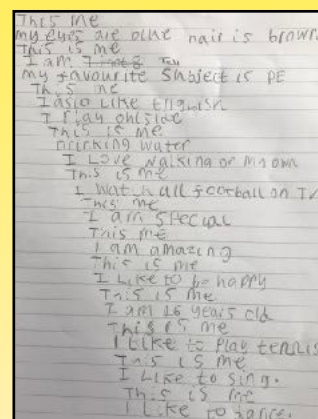 This me
my eyes are blue hair is brown
This is me
I am Tall
my favourite Subject is PE
This me
I also like English
I Play outside
This is me
Drinking Water
I Love walking on my own
This is me
I watch all football on TV
This me
I am special
This me
I am amazing
This is me
I Like to be happy
This is me
I am 16 years old
This is me
I Like to Play tennis
This is me
I Like to sing.
This is me
I Like to